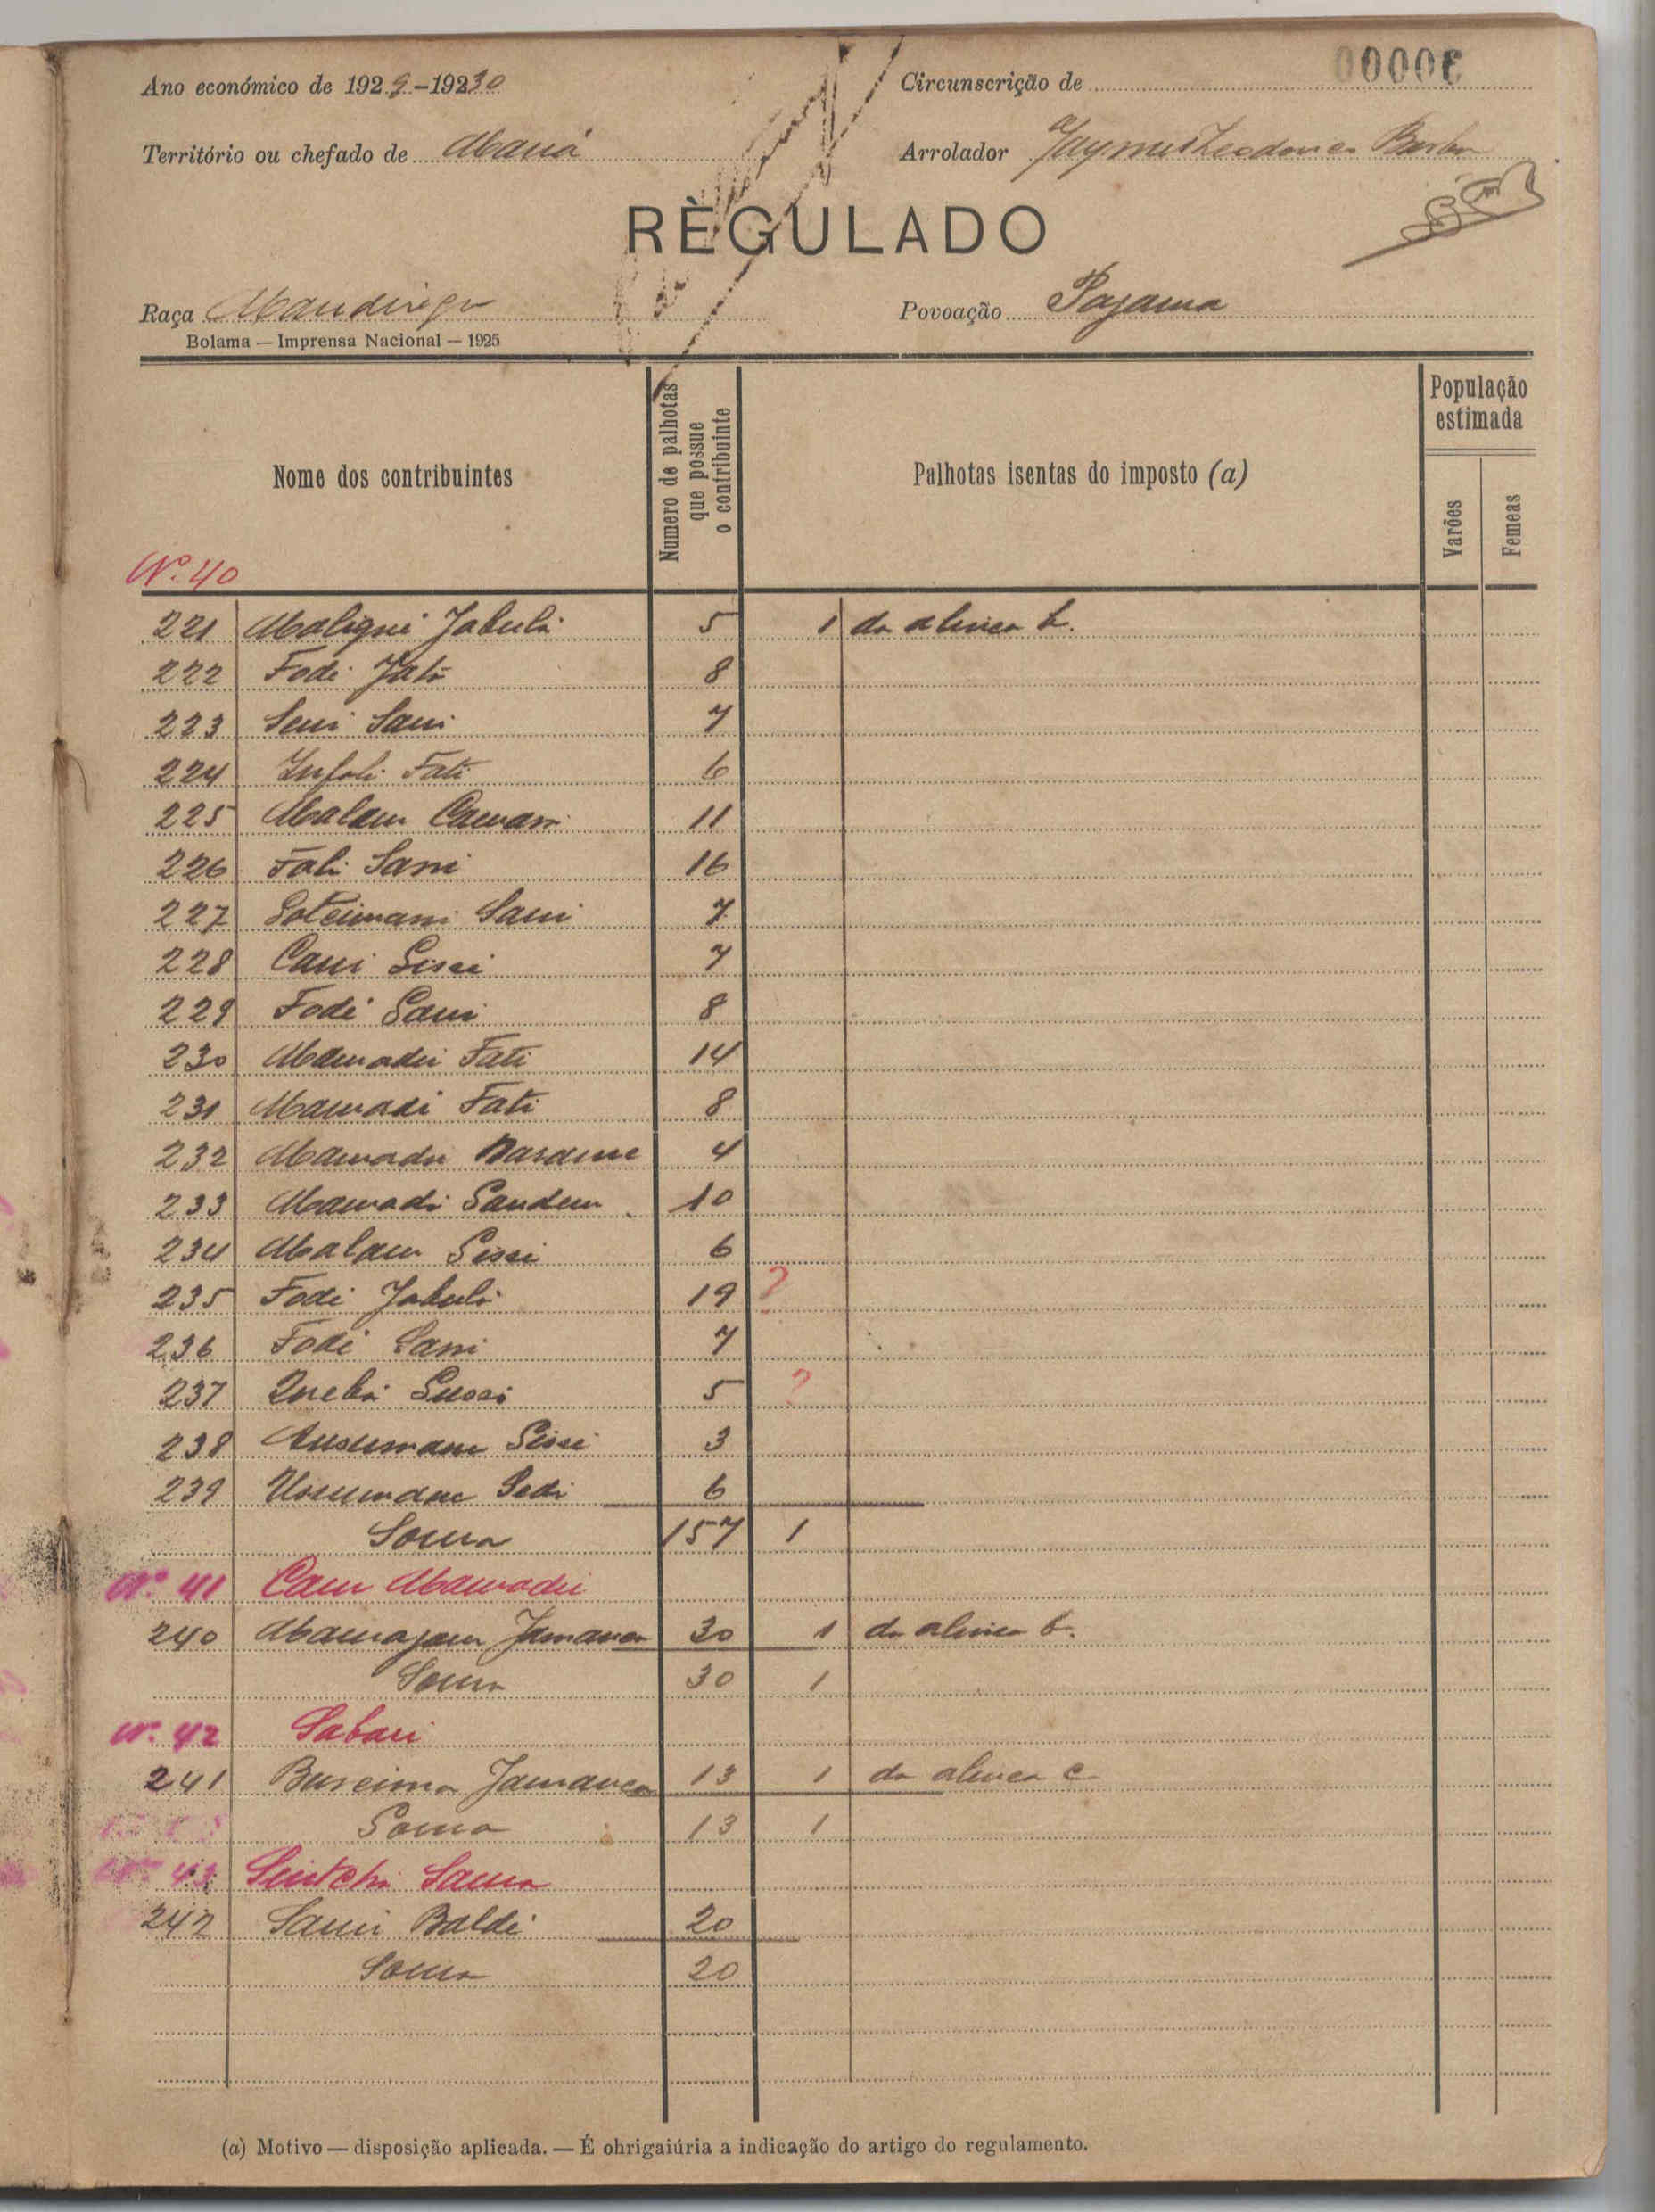 00006
Ano económico de 1929-1930
Circunscrição de
Território ou chefado de Maná
Arrolador
RÈGULADO
Raça Mandinga
Povoação Pajama
Bolama — Imprensa Nacional — 1925
Nome dos contribuintes
Numero de palhotas que possue o contribuinte
Palhotas isentas do imposto (a)
População estimada
Varões
Femeas
Nº. 40
221 Maligui Jabula 5 1 da alinea b.
222 Fodi Jató 8
223 Seni Sani 7
224 Infali Fati 6
225 Malam Camará 11
226 Fali Sani 16
227 Soleimani Sani 7
228 Cani Sissi 7
229 Fodé Sani 8
230 Mamadú Fati 14
231 Mamadi Fati 8
232 Mamadu 4
233 Mamadi 10
234 Malam Sissi 6
235 Fodi Jabula 19 ?
236 Fodé Sani 7
237 Quebá 5 ?
238 Sissi 3
239 6
Soma 157 1
Nº 41 Cam Mamadú
240 30 1 da alinea b.
Soma 30 1
Nº. 42 Sabari
241 Jamanca 13 1 da alinea c
Soma 13 1
Nº 43 Sintchã
242 Baldé 20
Soma 20
(a) Motivo — disposição aplicada. — É ohrigaiúria a indicação do artigo do regulamento.